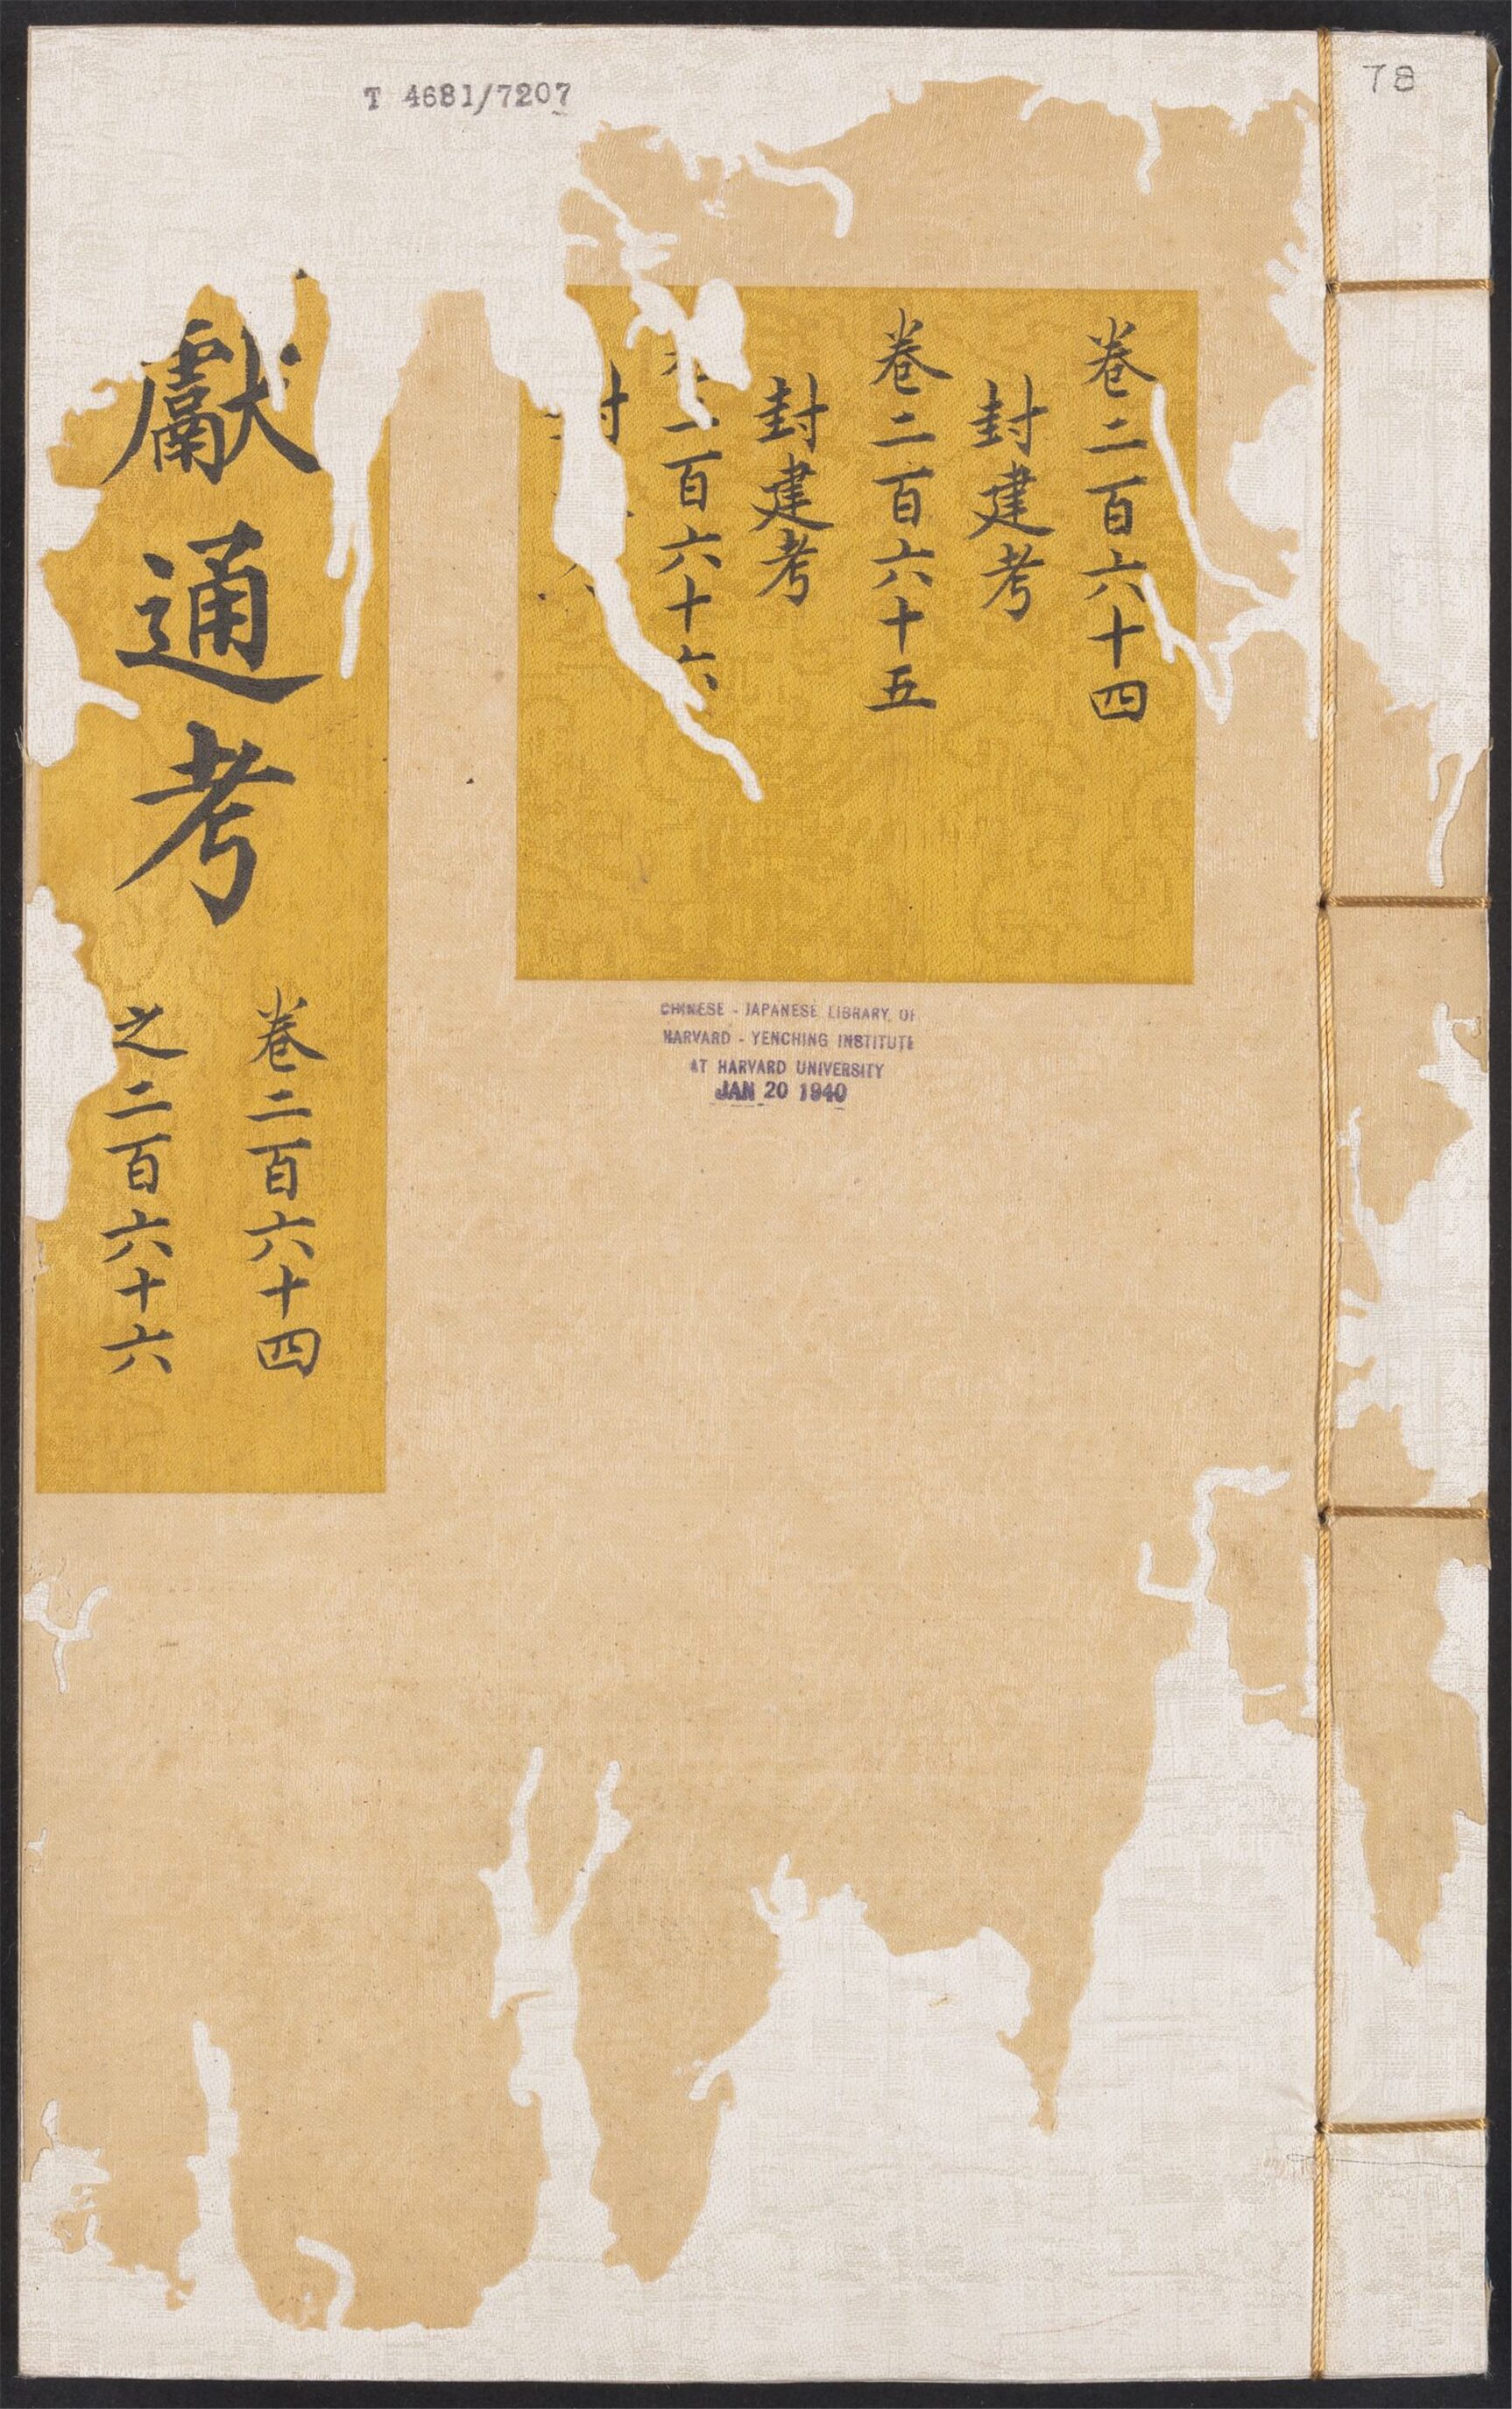 T 4681/7207
78
卷二百六十四
封建考
卷二百六十五
封建考
百六十六
封
獻通考
卷二百六十四
之二百六十六
CHINESE - JAPANESE LIBRARY OF
HARVARD - YENCHING INSTITUTE
AT HARVARD UNIVERSITY
JAN 20 1940